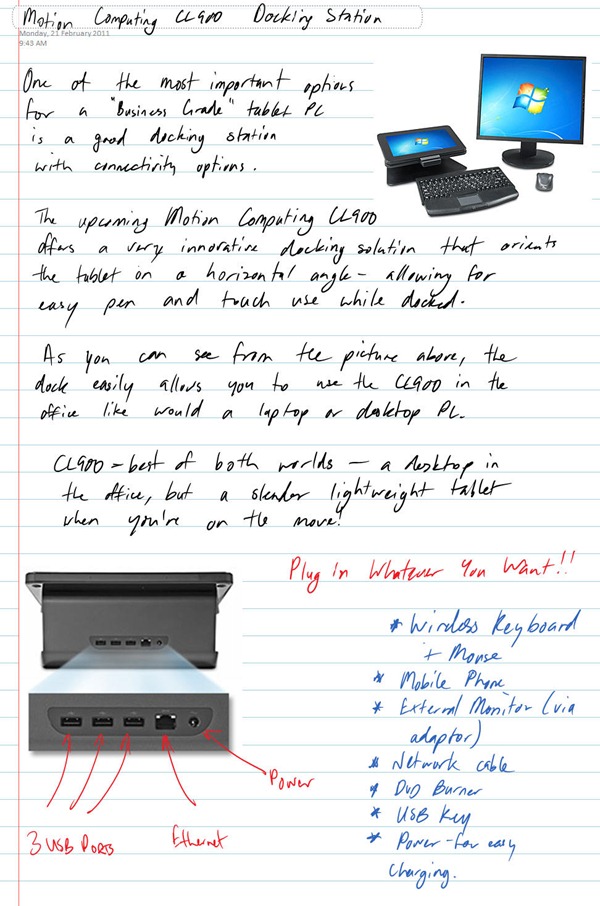 Motion Computing CL900 Docking Station
Monday, 21 February 2011
9:43 AM
One of the most important options
for a "Business Grade" tablet PC
is a good docking station
with connectivity options.
The upcoming Motion Computing CL900
offers a very innovative docking solution that orients
the tablet on a horizontal angle - allowing for
easy pen and touch use while docked.
As you can see from the picture above, the
dock easily allows you to use the CL900 in the
office like would a laptop or desktop PC.
CL900 = best of both worlds - a desktop in
the office, but a slender lightweight tablet
when you're on the move!
Plug in Whatever You Want!!
* Wireless Keyboard
+ Mouse
* Mobile Phone
* External Monitor (via
adaptor)
* Network cable
* DVD Burner
* USB Key
* Power - for easy
charging.
Power
3 USB PORTS
Ethernet